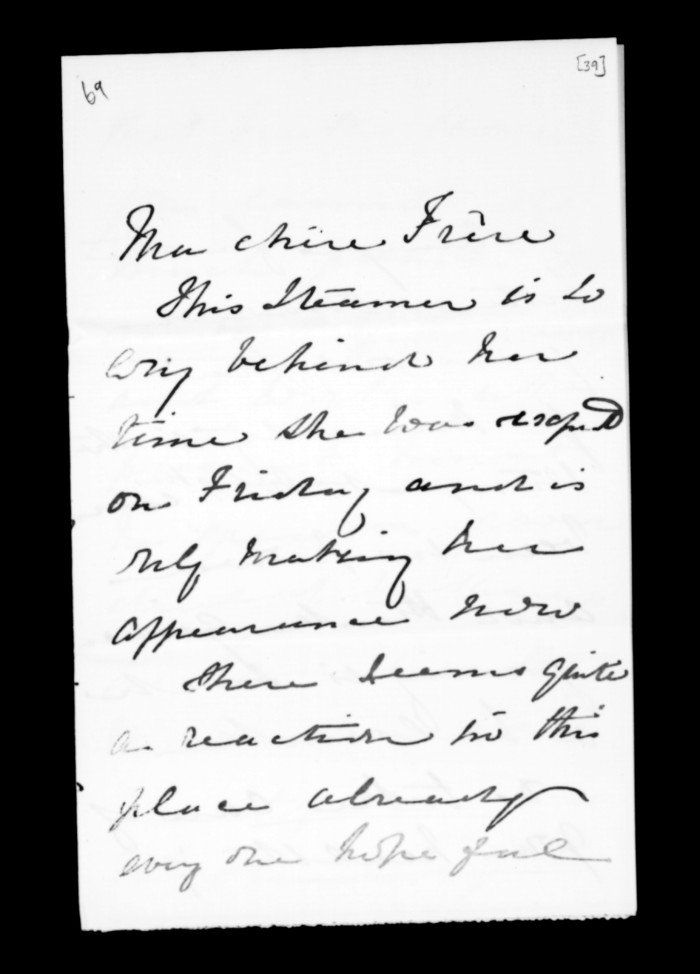 69
[39]
Ma chère Frère
This Steamer is so
long behind her
time she was expectd
on Friday and is
only making her
appearance now
There seems quite
a reaction in this
place already
every one hope ful